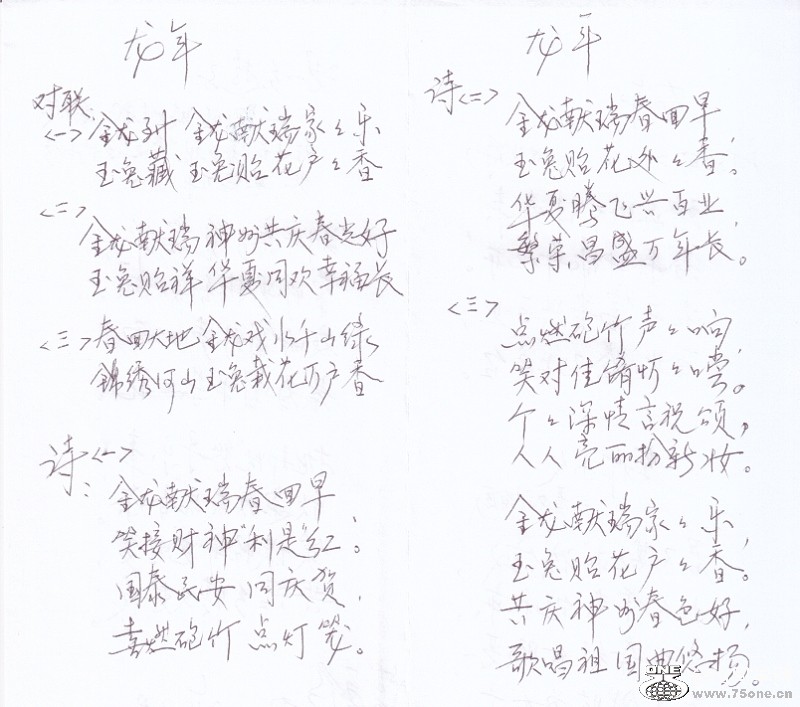 龙年
对联
<一> 金龙到 金龙献瑞家々乐
玉兔藏 玉兔贻花户々香
<二>
金龙献瑞神州共庆春光好
玉兔贻祥华夏同欢幸福长
<三> 春回大地金龙戏水千山绿
锦绣河山玉兔栽花万户香
诗<一>
：
金龙献瑞春回早
笑接财神"利是"红。
国泰民安同庆贺，
喜燃砲竹点灯笼。
龙年
诗<二>
金龙献瑞春回早，
玉兔贻花处々香。
华夏腾飞兴百业，
繁荣昌盛万年长。
<三>
点燃砲竹声々响，
笑对佳肴忻々嚐。
个々深情言祝颂，
人人亮丽扮新妆。
金龙献瑞家々乐，
玉兔贻花户々香。
共庆神州春色好，
歌唱祖国曲悠扬。
ONE
www.75one.cn